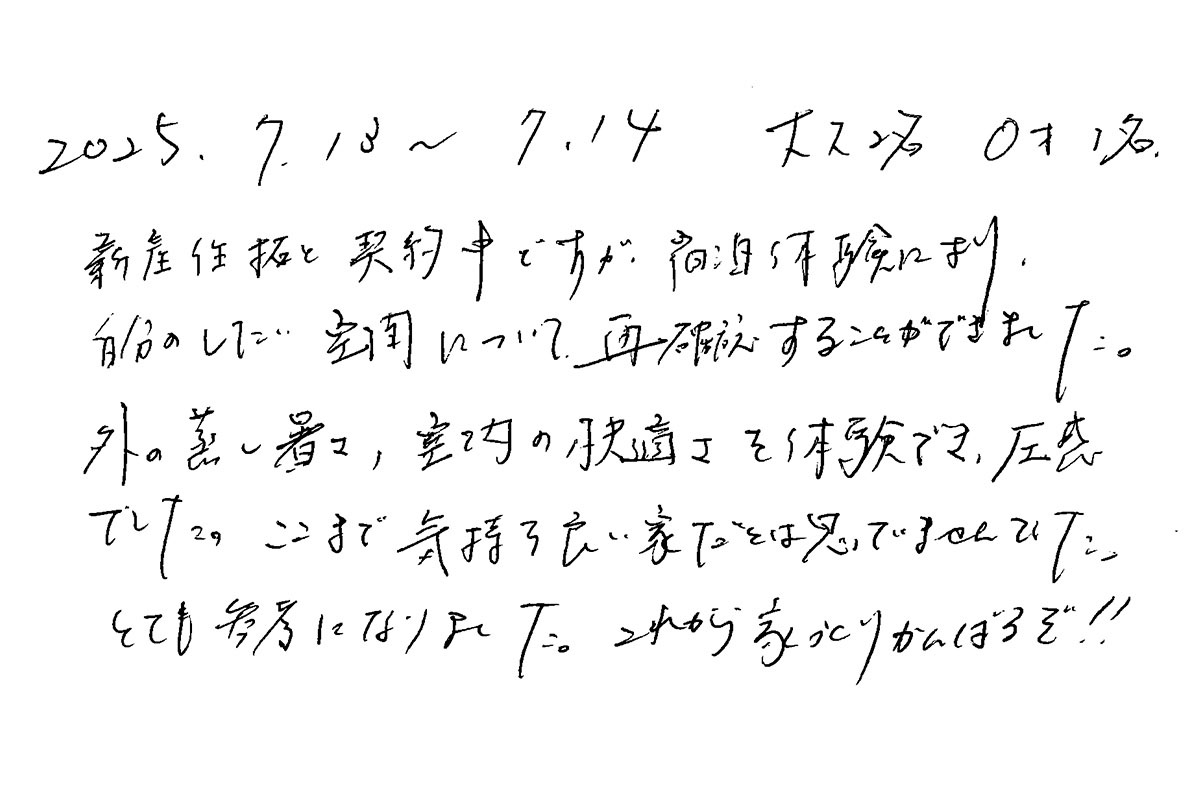 2025. 7. 13 ~ 7. 14 大人2名 0才1名.
新産住拓と契約中ですが、宿泊体験により、
自分のしたい空間について、再確認することができました。
外の蒸し暑さ, 室内の快適さを体験でき、圧巻
でした。ここまで気持ち良い家だとは思っていませんでした。
とても参考になりました。これから家づくりがんばるぞ!!